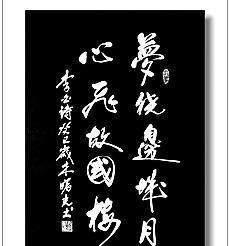 夢繞邊城月
心飛故國樓
李白詩癸巳歲末曙光書